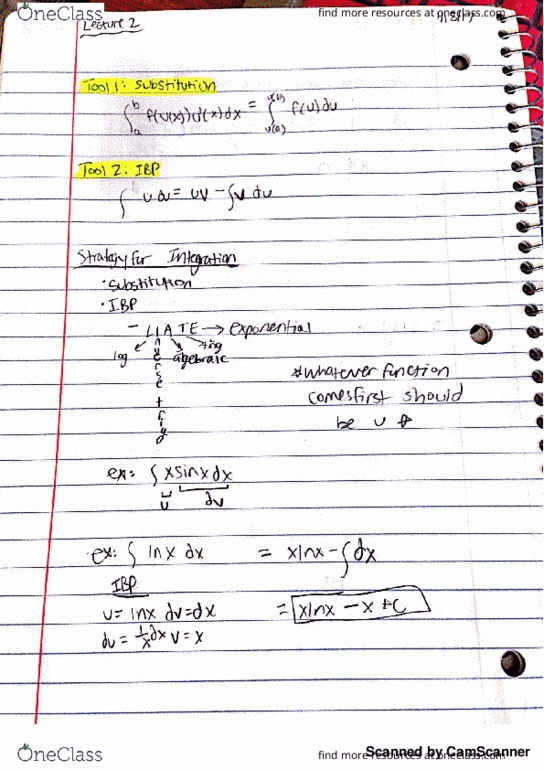 OneClass
find more resources at oneclass.com
Lecture 2
Tool 1: Substitution
∫_a^b f(u(x))u'(x)dx = ∫_{u(a)}^{u(b)} f(u)du
Tool 2: IBP
∫ u dv = uv - ∫v du
Strategy for Integration
• Substitution
• IBP
- LIATE → exponential
log inverse trig algebraic trig
* whatever function
comes first should
be u *
ex: ∫ x sinx dx
u dv
ex: ∫ lnx dx = xlnx - ∫dx
IBP
u = lnx dv = dx = xlnx - x + C
du = 1/x dx v = x
OneClass
find more resources at oneclass.com
Scanned by CamScanner